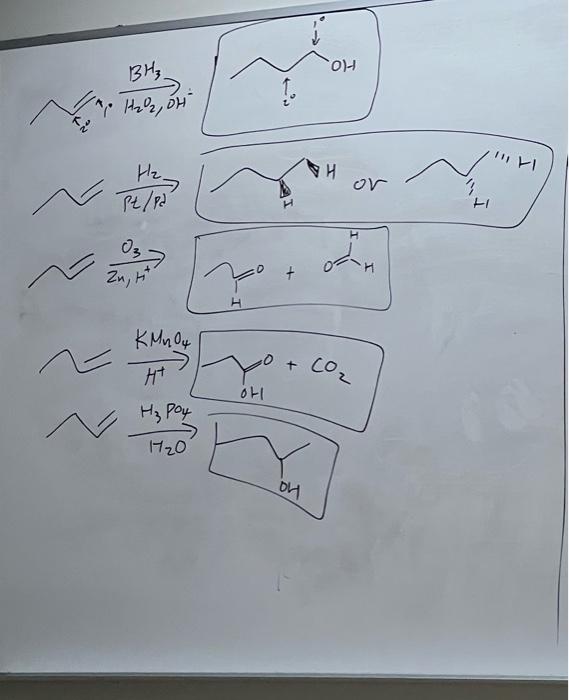 1°
BH₃
OH
H₂O₂, OH⁻
1°
2°
2°
H₂
Pt/Pd
H
H
or
H
H
O₃
Zn, H⁺
O
H
+
H
O
H
KMnO₄
H⁺
O
OH
+ CO₂
H₃PO₄
H₂O
OH